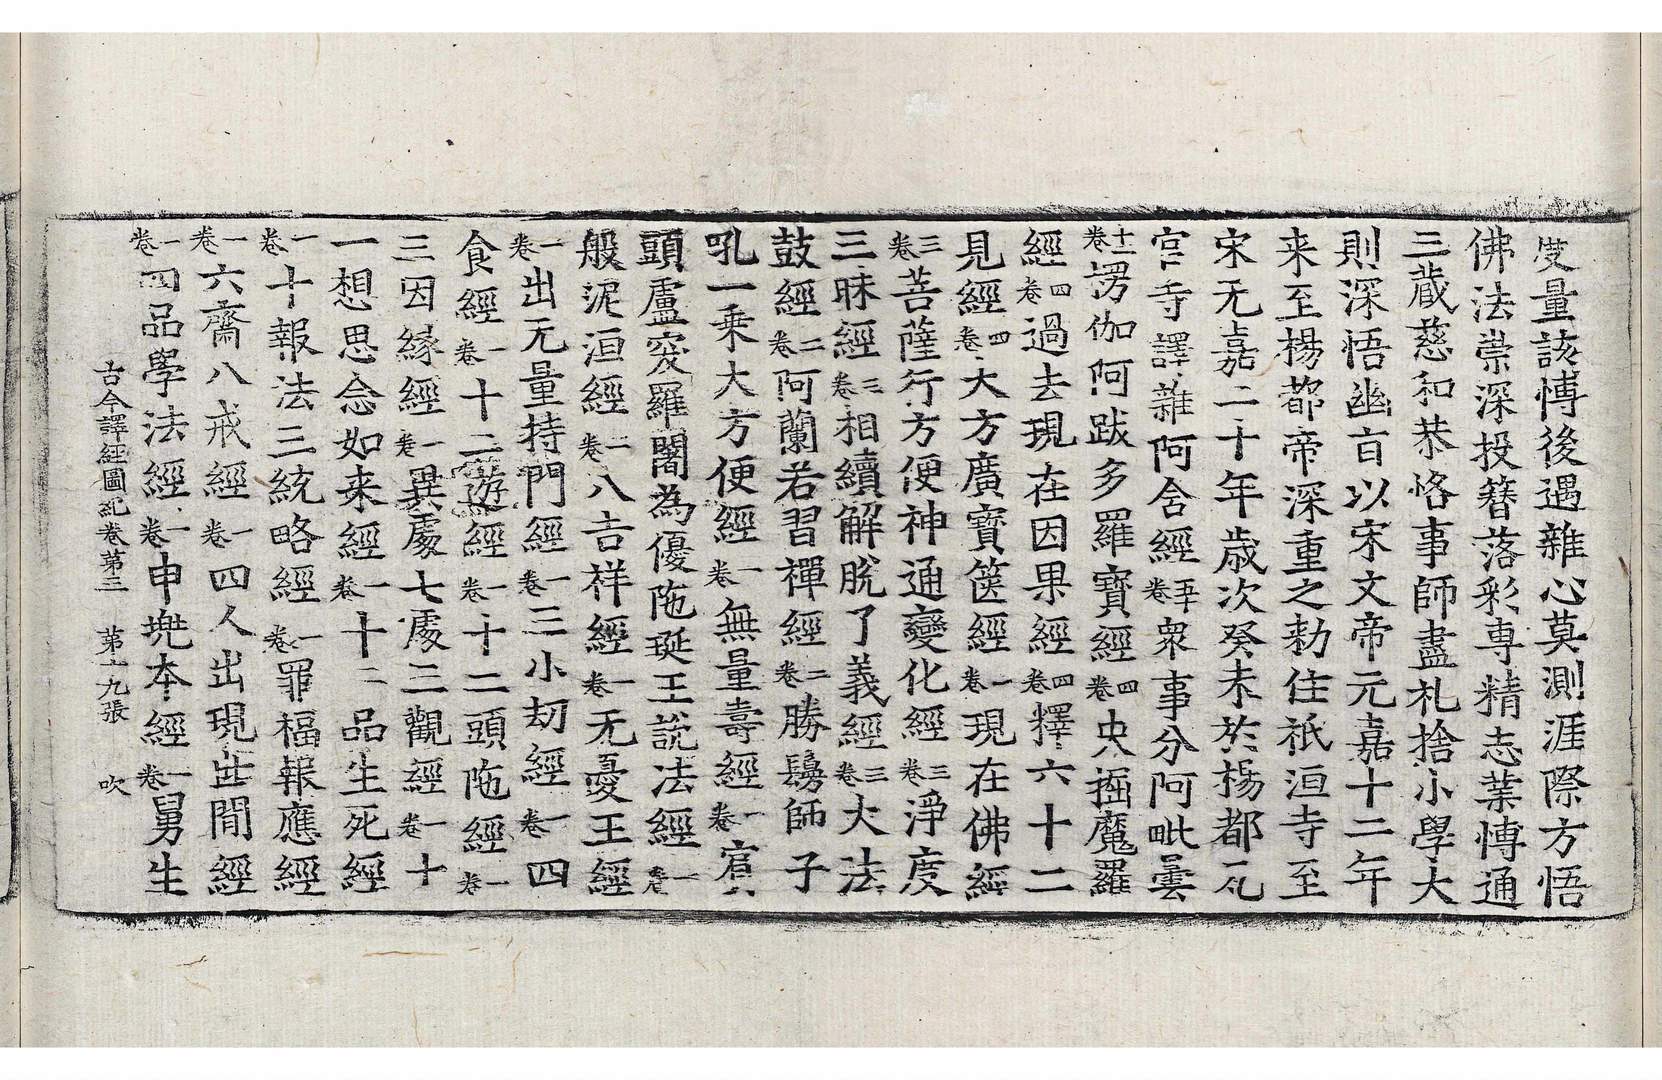 變量該愽後遇雜心莫測涯際方悟
佛法崇深投簪落彩専精志業愽通
三藏慈和恭恪事師盡札捨小學大
則深悟幽㫖以宋文帝元嘉十二年
来至楊都帝深重之勅住祇洹寺至
宋无嘉二十年歳次癸未於楊都瓦
官寺譯雜阿含經五十卷衆事分阿毗曇
十二卷楞伽阿跋多羅寶經四卷央掘魔羅
經四卷過去現在因果經四卷釋六十二
見經四卷大方廣寶篋經一卷現在佛經
三卷菩薩行方便神通變化經三卷淨度
三昧經三卷相續解脫了義經三卷大法
鼓經二卷阿蘭若習禪經二卷勝鬘師子
吼一乗大方便經一卷無量壽經一卷賓
頭盧突羅闍為優陁延王說法經一卷
般泥洹經一卷八吉祥經一卷无憂王經
一卷出无量持門經一卷三小劫經一卷四
食經一卷十二遊經一卷十二頭陁經一卷
三因縁經一卷異處七處三觀經一卷十
一想思念如来經一卷十二品生死經
一卷十報法三統略經一卷罪福報應經
一卷六齋八戒經一卷四人出現世間經
一卷四品學法經一卷申兠本經一卷舅生
古今譯經圖紀卷第三 第十九張 吹